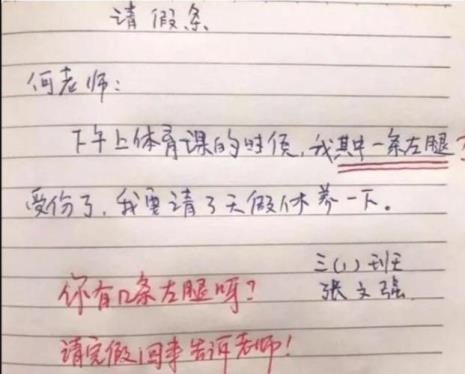 请假条
何老师：
下午上体育课的时侯，我其中一条左腿？
受伤了，我要请3天假休养一下。
三(1)班
张文强
你有几条左腿呀？
请完假回来告诉老师！